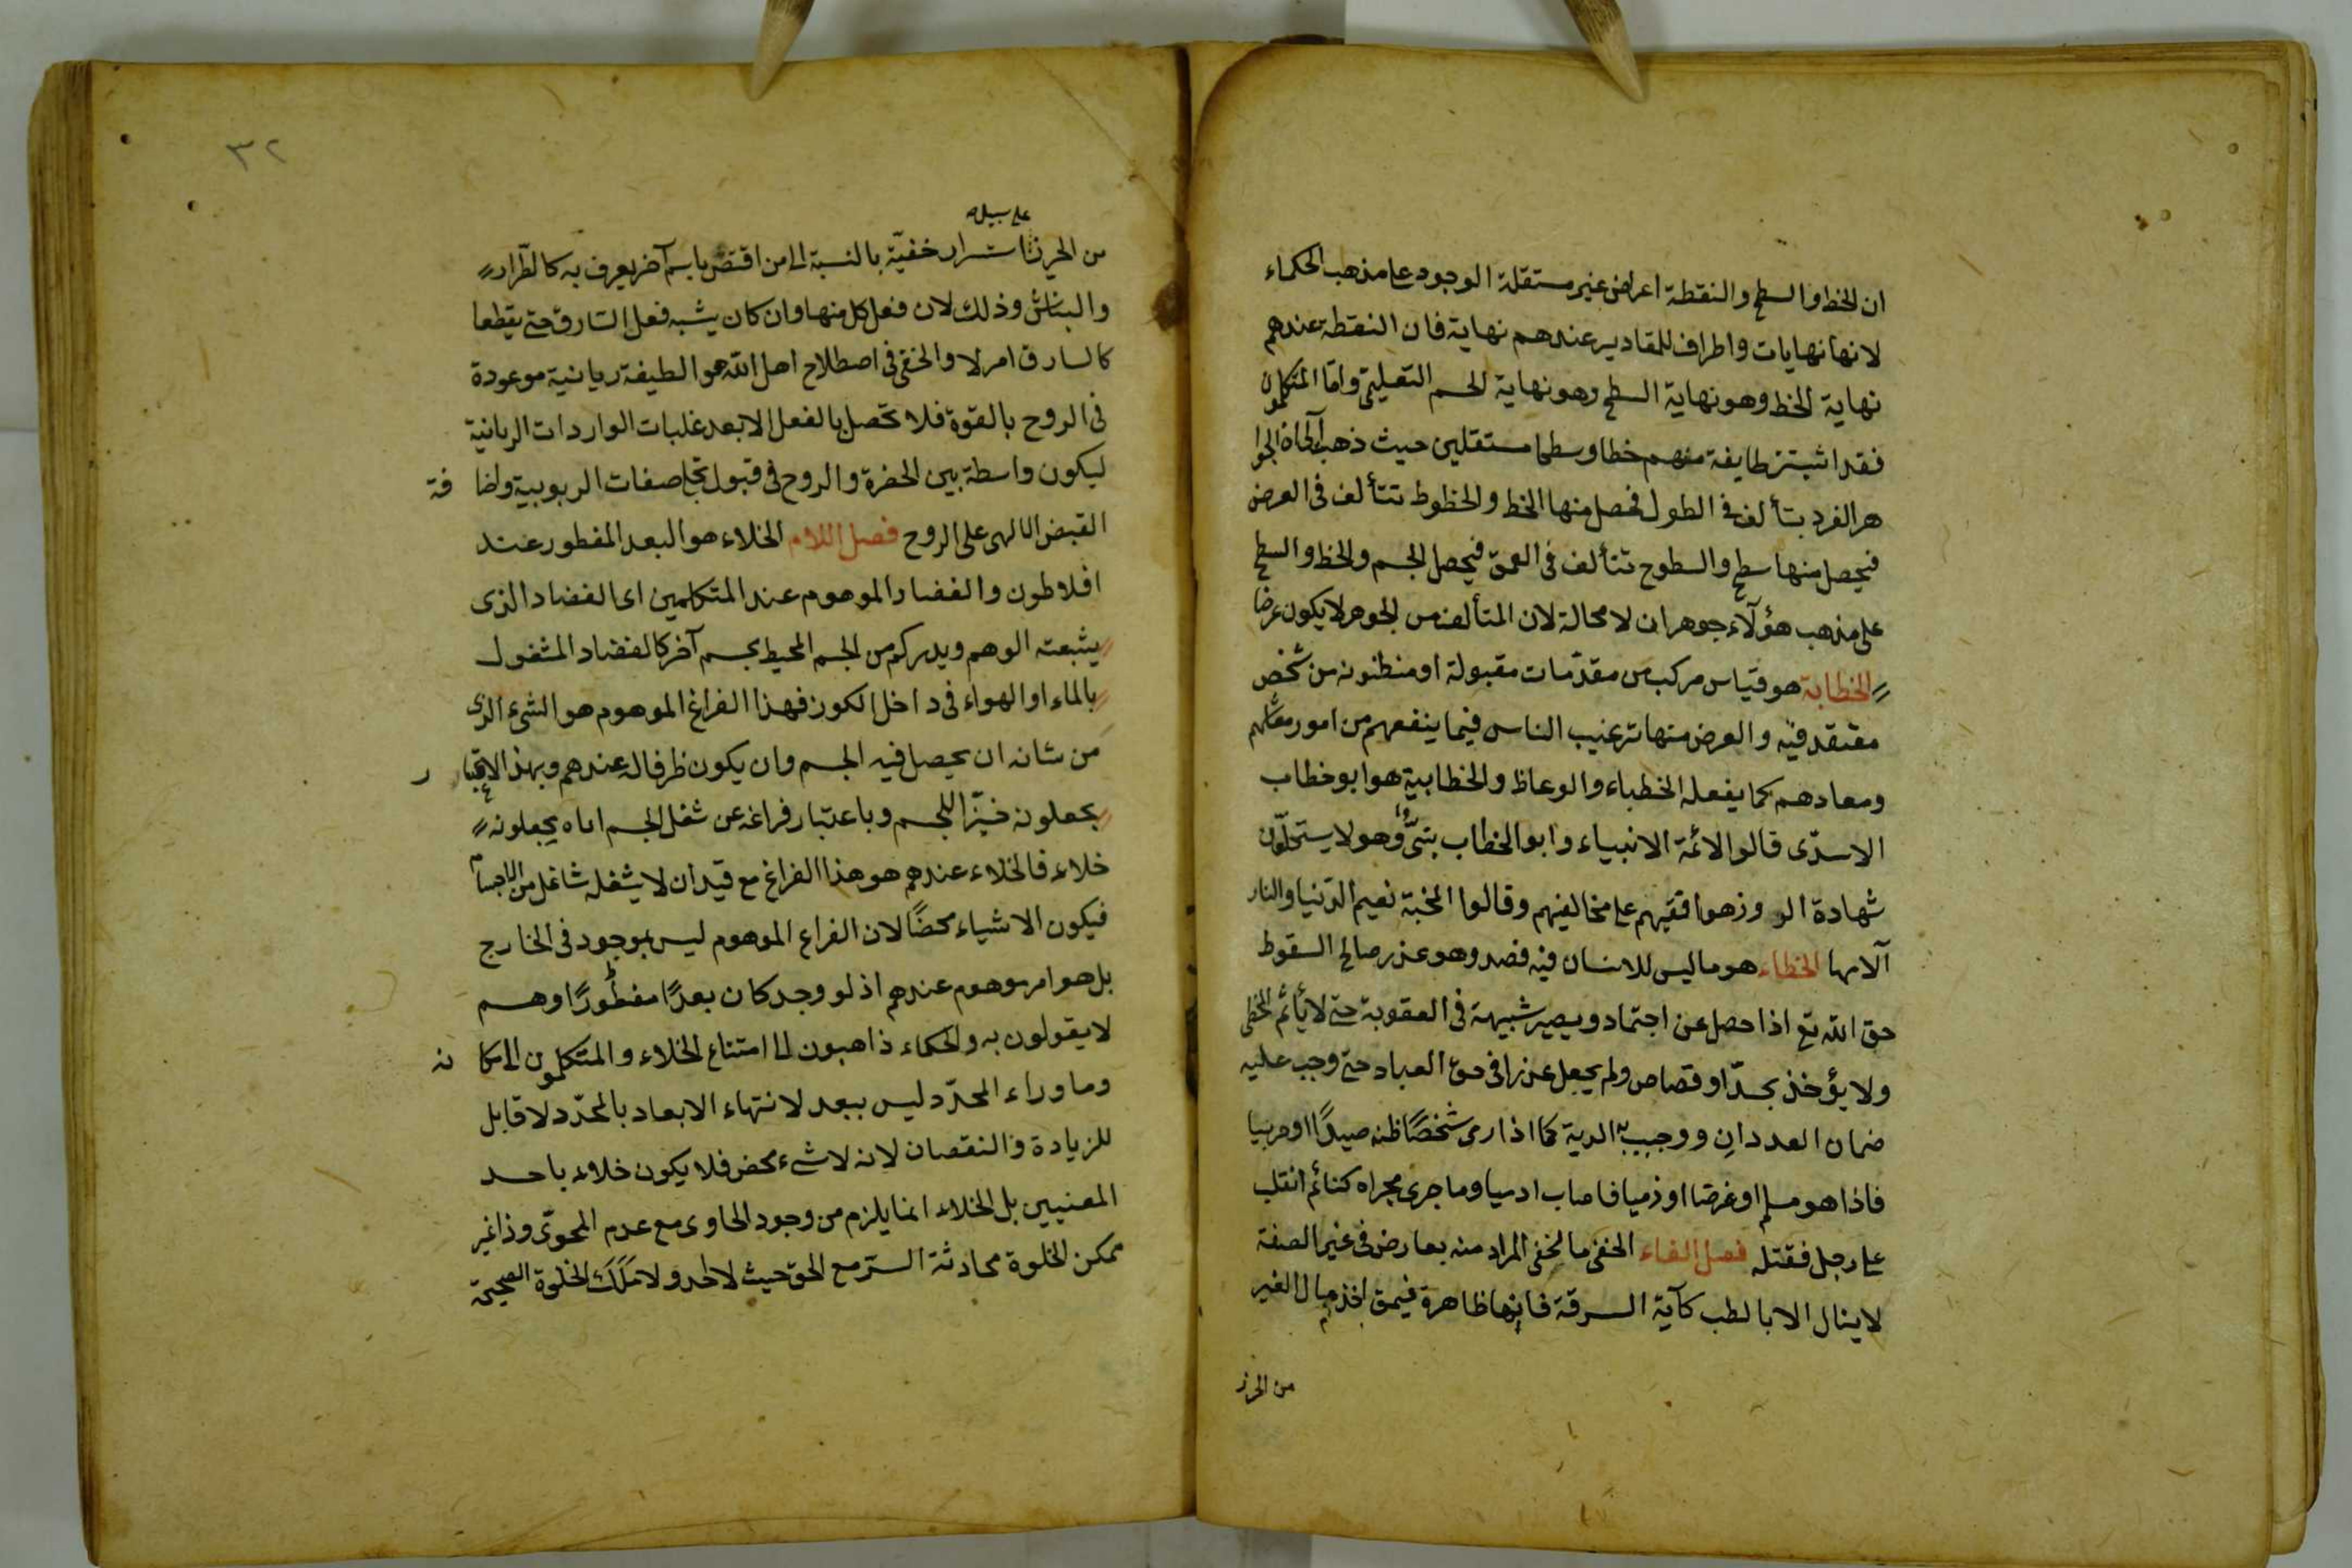 ان الخط والسطح والنقطة اعراض غير مستقلة الوجود على مذهب الحكماء
لانها نهايات واطراف للمقادير عندهم نهاية فان النقطة عندهم
نهاية الخط وهو نهاية السطح وهو نهاية الجسم التعليمى واما المتكلمون
فقد اثبتت طايفة منهم خطا وسطحا مستقلين حيث ذهب الى ان الجوا
هر الفرد يتألف فى الطول فحصل منها الخط والخطوط تتألف فى العرض
فيحصل منها سطح والسطوح تتألف فى العمق فيحصل الجسم والخط والسطح
على مذهب هؤلاء جوهران لا محالة لان المتألف من الجوهر لا يكون عرضا
الخطابة هو قياس مركب من مقدمات مقبولة او منظنونه من شخص
معتقد فيه والعرض منها ترغيب الناس فيما ينفعهم من امور معاشهم
ومعادهم كما يفعله الخطباء والوعاظ والخطابية هو ابو خطاب
الاسدى قالوا الائمة الانبياء وابو الخطاب بنى وهو لا يستحلون
شهادة الزور وزهوافقيهم على مخالفيهم وقالوا الجنة نعيم الدنيا والنار
آلامها الخطاء هو ما ليس للانسان فيه قصد وهو عذر صالح السقوط
حق الله تع اذا حصل عن اجتماد ويصير شبيهة فى العقوبة حتى لا يأثم الخطى
ولا يؤخذ بحد او قصاص ولم يجعل عذرا فى حق العباد حتى وجب عليه
ضمان العددان ووجب به الدية كما اذا رمى شخصًا ظنه صيدًا او حربيا
فاذا هو مسلم او غرضا او ذميا فاصاب ادميا وما جرى مجراه كنائم انقلب
على رجل فقتله فصل الفاء الخفى ما الخفى المراد منه بعارض فى غير الصفة
لا ينال الا بالطب كآية السرقة فانها ظاهرة فيمن اخذ مال الغير
من الحرز
٣٢
على سبيل
من الحرز استسرار خفية بالنسبة الى من اقتض باسم آخر يعرف به كالطرار
والنباش وذلك لان فعل كل منها وان كان يشبه فعل السارق حتى يقطعا
كالسارق ام لا والخفى فى اصطلاح اهل الله هو الطيفة ربانية موعودة
فى الروح بالقوة فلا تحصل بالفعل الا بعد غلبات الواردات الربانية
ليكون واسطة بين الحضرة والروح فى قبول تجلى صفات الربوبية واضا فة
القبض الالهى على الروح فصل اللام الخلاء هو البعد المفطور عند
افلاطون والفضاء الموهوم عند المتكلمين اى الفضاء الذى
يثبته الوهم ويدركه من الجسم المحيط بجسم آخر كالفضاء المشغول
بالماء او الهواء فى داخل الكوز فهذا الفراغ الموهوم هو الشىء الذى
من شانه ان يحصل فيه الجسم وان يكون ظرفا له عندهم وبهذا الاعتبا ر
يجعلونه حيزا للجسم وباعتبار فراغه عن شغل الجسم اياه يجعلونه
خلاء فالخلاء عندهم هو هذا الفراغ مع قيد ان لا يشغله شاغل من الاجسام
فيكون الاشياء محضًا لان الفراع الموهوم ليس بموجود فى الخارج
بل هو امر موهوم عندهم اذ لو وجد كان بعدًا مفطورًا وهم
لا يقولون به والحكماء ذاهبون الى امتناع الخلاء والمتكلمون الى امكا نه
وما وراء المحدد ليس ببعد لانتهاء الابعاد بالمحدد لا قابل
للزيادة والنقصان لانه لا شىء محض فلا يكون خلاء باحد
المعنيين بل الخلاء انما يلزم من وجود الحاوى مع عدم المحوى وذا غير
ممكن الخلوة محادثة السر مع الحق حيث لا احد ولا ملك الخلوة الصحيحة